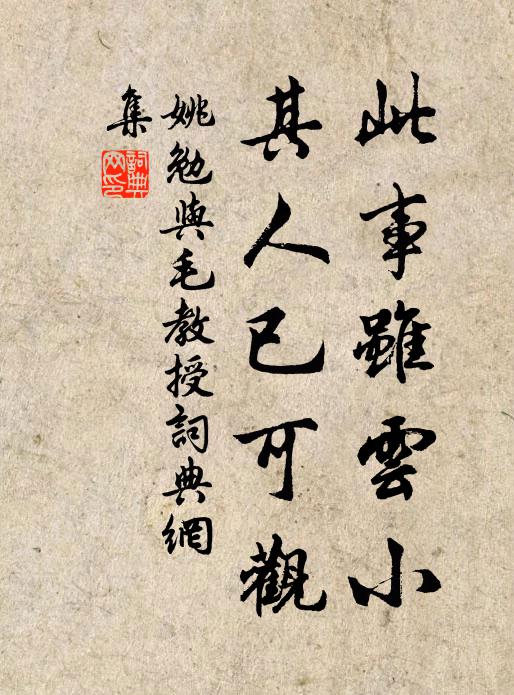 此事雖雲小
其人已可觀
姚勉與毛教授詞典網
集
詞典網印